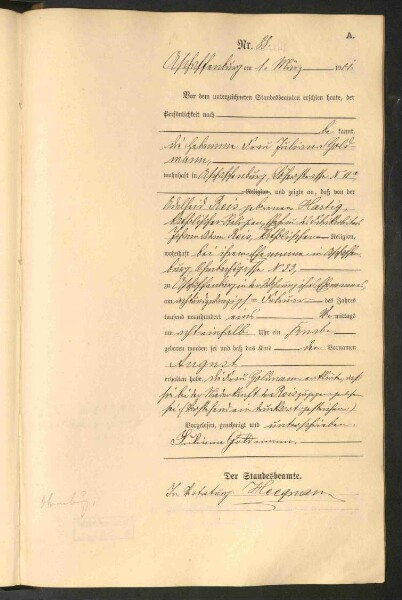 A.
Nr. 88.
Aschaffenburg am 1. März 1881.
Vor dem unterzeichneten Standesbeamten erschien heute, der
Persönlichkeit nach
be kannt,
die Hebamme Frau Juliana Gold-
mann,
wohnhaft in Aschaffenburg,
Religion, und zeigte an, daß von der
Adelheid Reis geborenen Hartig,
katholischer Religion, Ehefrau des
Johann Adam Reis, katholischer Religion,
wohnhaft bei ihrem Ehemanne in Aschaffen-
burg, No 33,
zu Aschaffenburg in der Wohnung ihres Ehemannes
am achtundzwanzigsten Februar des Jahres
tausend achthundert achtzig und eins Vormittags
um acht einhalb Uhr ein Knabe
geboren worden sei und daß das Kind den Vornamen
August
erhalten habe. Die Frau Goldmann erklärte, daß
sie bei der Niederkunft der Reis zugegen gewesen
sei.
Vorgelesen, genehmigt und unterschrieben
Juliana Goldmann.
Der Standesbeamte.
In Vertretung